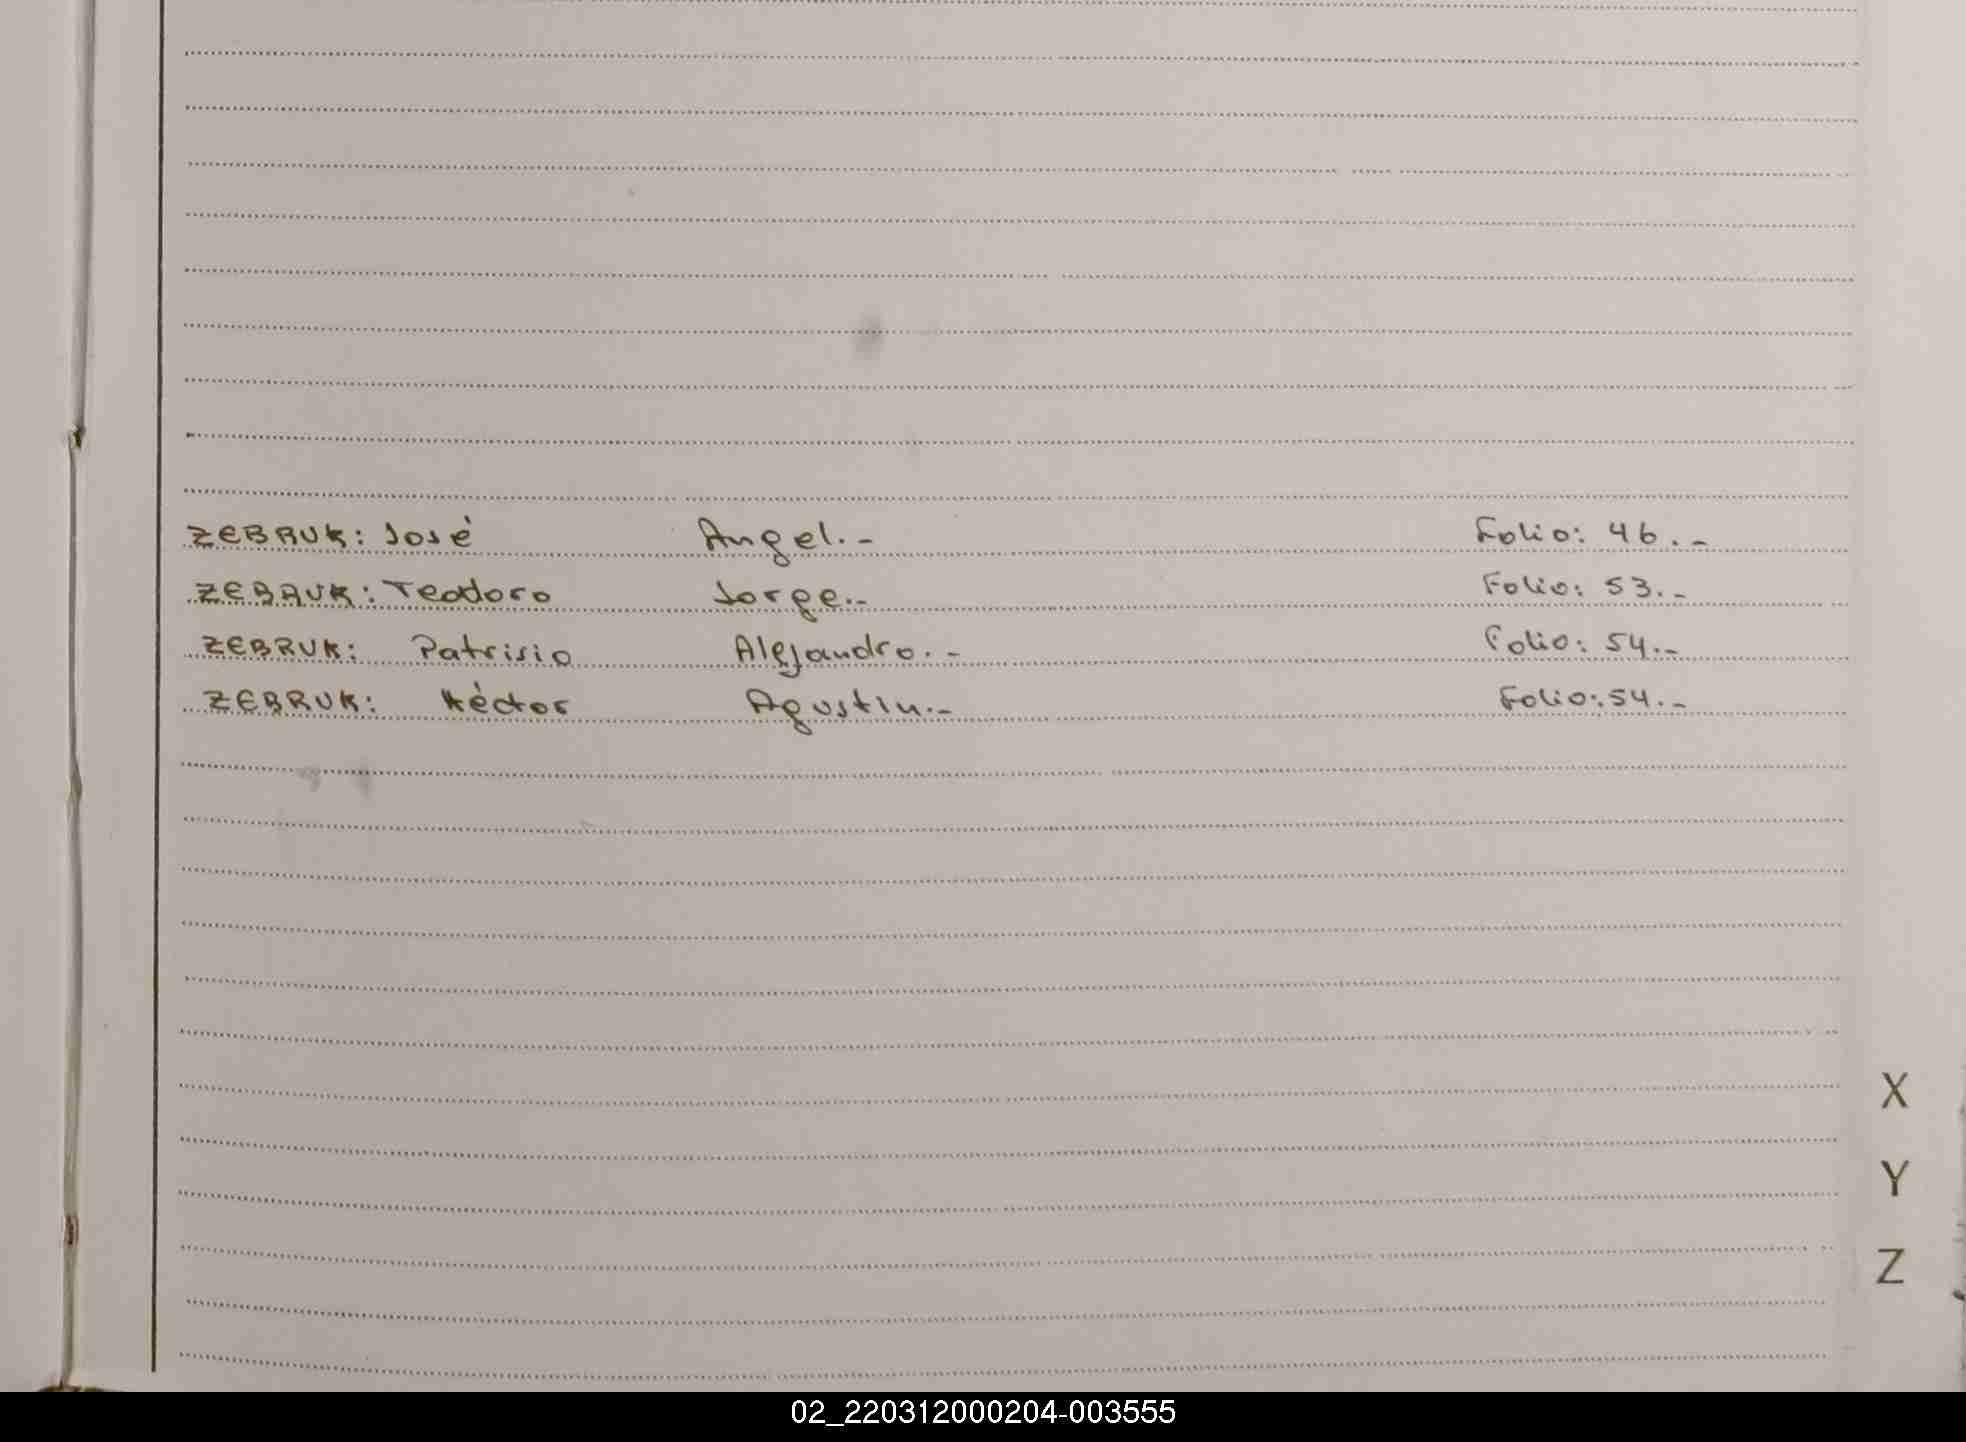 ZEBRUK: José Angel.-  Folio: 46.-
ZEBRUK: Teodoro Jorge.-  Folio: 53.-
ZEBRUK: Patrisio Alejandro.-  Folio: 54.-
ZEBRUK: Héctor Agustin.-  Folio: 54.-
X
Y
Z
02_220312000204-003555